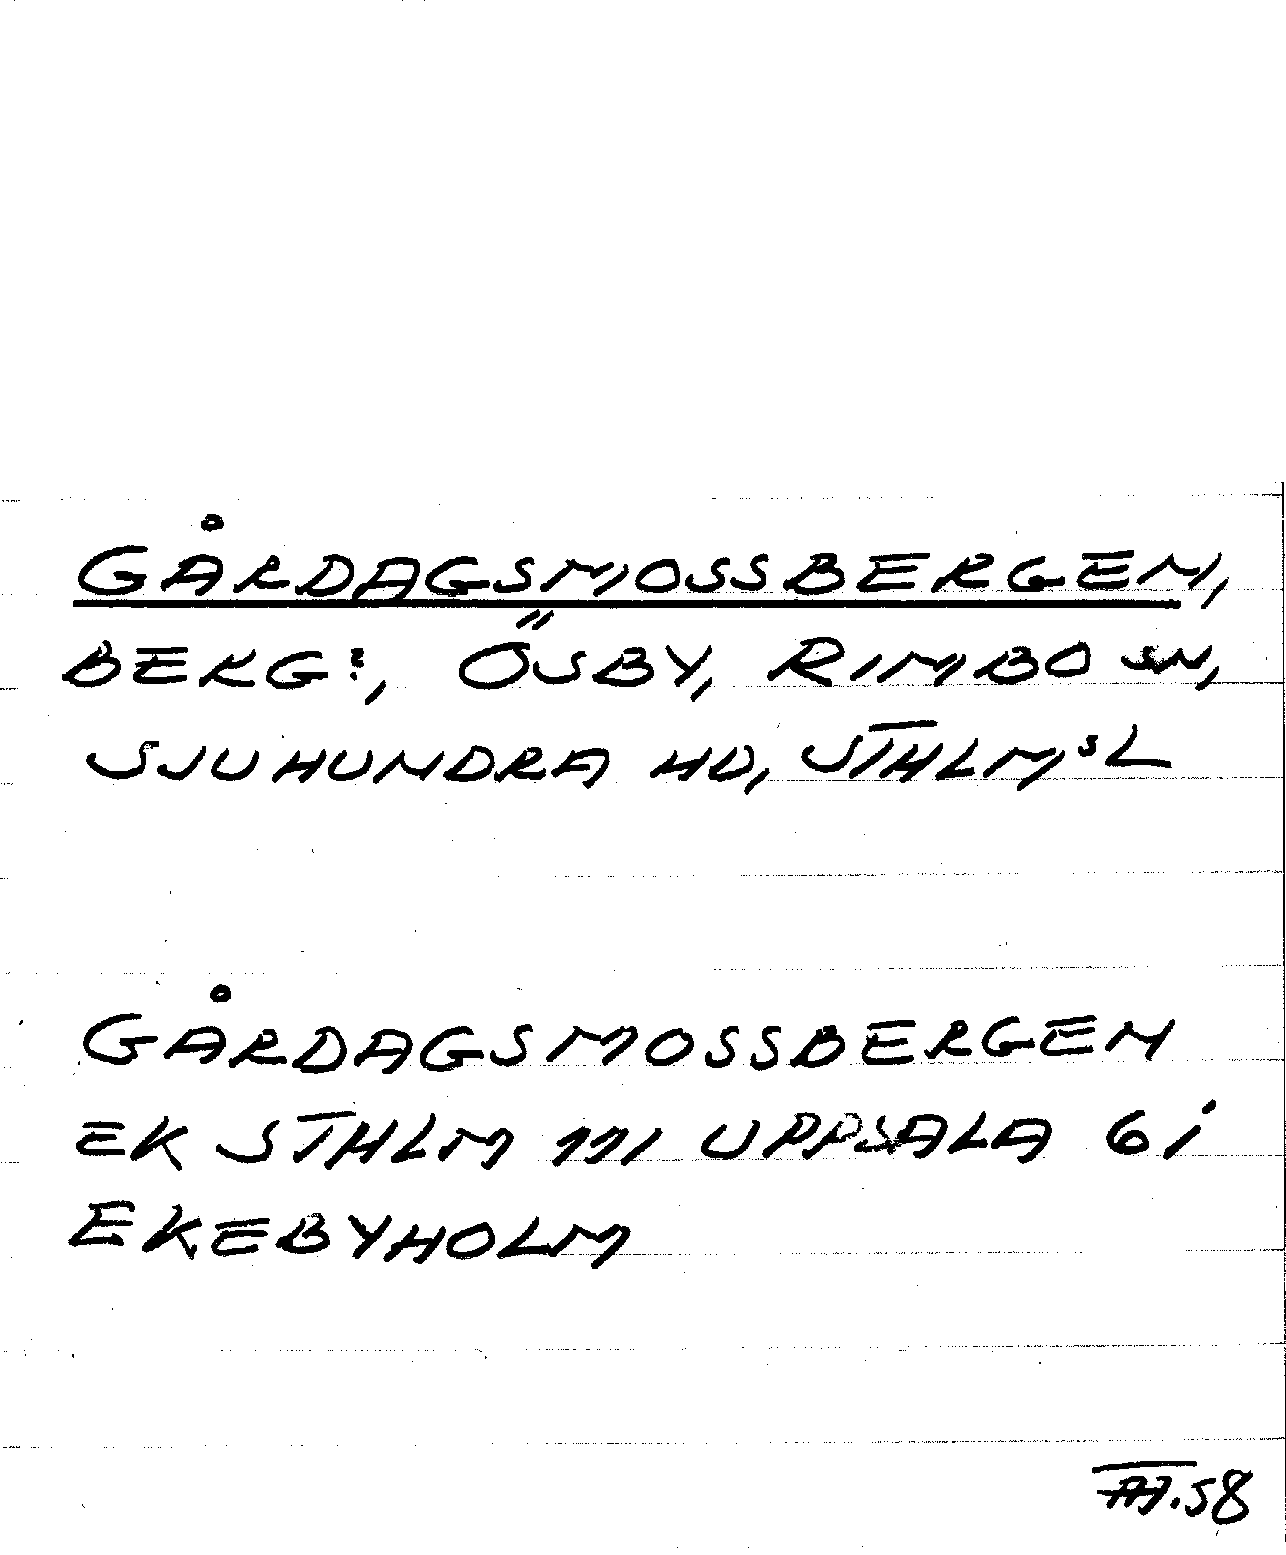 GÅRDAGSMOSSBERGEN,
BERG:, ÖSBY, RIMBO SN,
SJUHUNDRA HD, STHLMˢ L
GÅRDAGSMOSSBERGEN
EK STHLM 111 UPPSALA 6 i
EKEBYHOLM
58